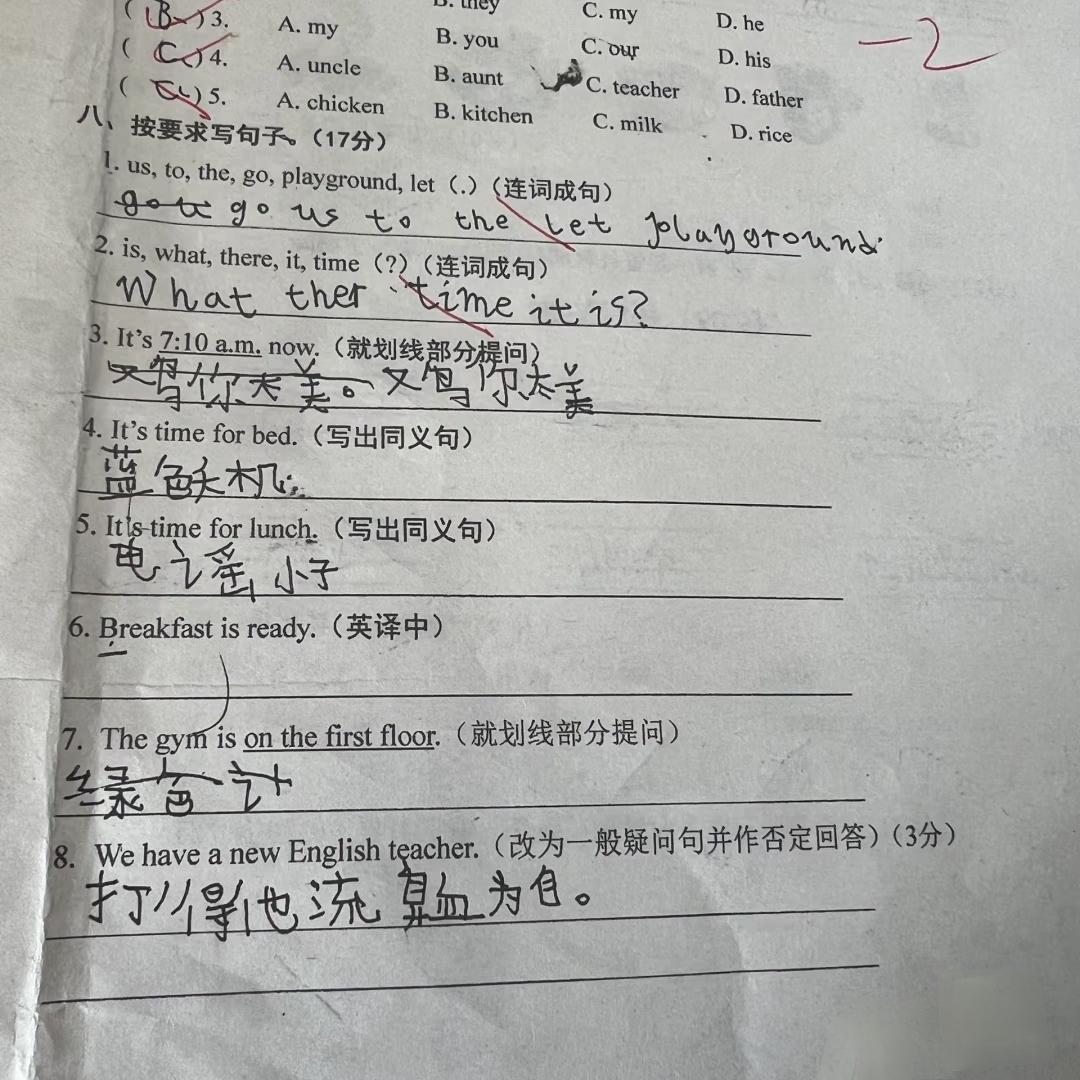 ( B ) 3. A. my B. they C. my D. he
( C ) 4. A. uncle B. you C. our D. his
( C ) 5. A. chicken B. aunt C. teacher D. father
B. kitchen C. milk D. rice
-2
八、按要求写句子。(17分)
1. us, to, the, go, playground, let (.) (连词成句)
go us to the let playground.
2. is, what, there, it, time (?) (连词成句)
What ther time it is?
3. It's 7:10 a.m. now. (就划线部分提问)
又写你太美。又写你太美
4. It's time for bed. (写出同义句)
蓝色机
5. It's time for lunch. (写出同义句)
电 小子
6. Breakfast is ready. (英译中)
7. The gym is on the first floor. (就划线部分提问)
绿色计
8. We have a new English teacher. (改为一般疑问句并作否定回答) (3分)
打得他流鼻血为自。